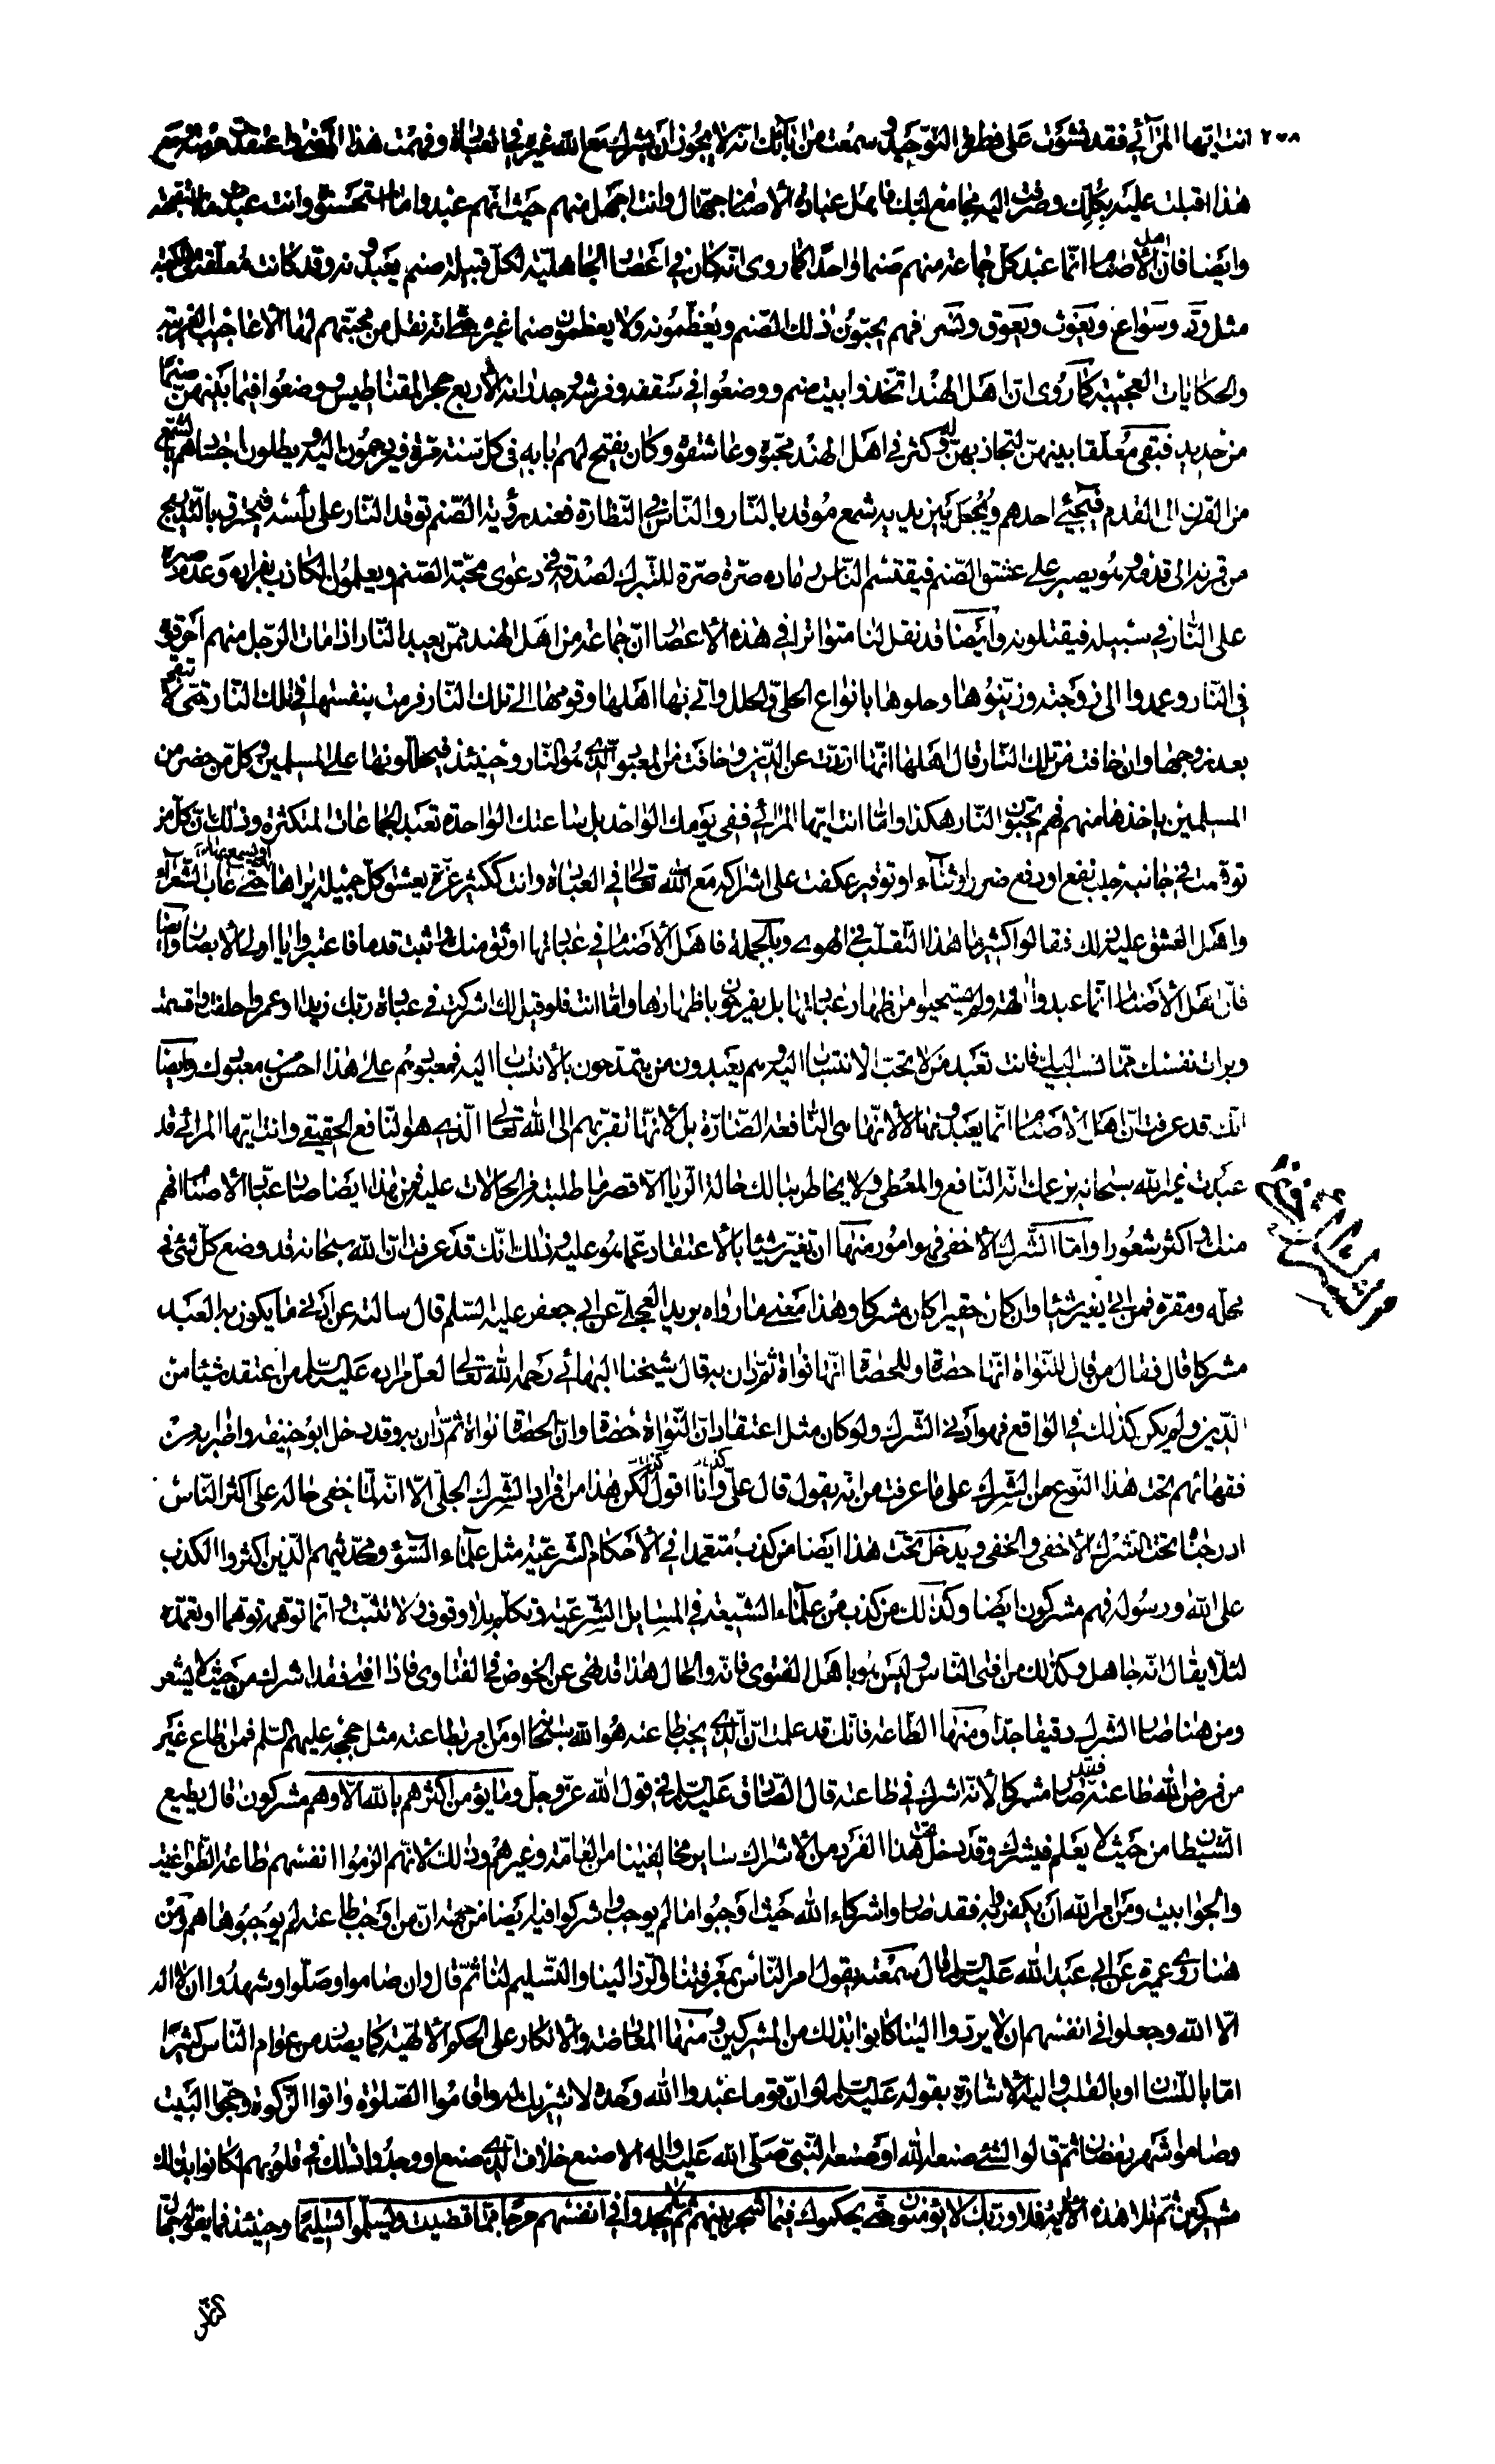 ٢٠٨ انت ايّها المرائي فقد نشؤت على فطرة التوحيد و سمعت من ابائك انّه لا يجوز ان يشرك مع الله غيره في العبادة و فهمت هذا المعنى و اعتقدته مع
هذا اقبلت عليه بكلّك و صرفت اليه مجامع لبك فاهل عبادة الاصنام جهّال و انت اجهل منهم حيث انهم عبدوا ما استحسنوه و انت عبدت ما
و ايضا فان اهل الاصنام انّما عبد كل جماعة منهم صنما واحدا كما روى انّه كان في اعصار الجاهلية لكلّ قبيلة صنم يعبدونه و قد كانت معلّقة في الكعبة
مثل ودّ و سواع و يغوث و يعوق و نسر فهم يحبّون ذلك الصّنم و يعظّمونه و لا يعظمون صنما غيره حتى انه نقل من محبّتهم لها الاعاجيب الغريبة
و الحكايات العجيبة كما روى ان اهل الهند اتّخذوا بيت صنم و وضعوا في سقفه و فرشه و جدرانه الاربع حجر المقناطيس و وضعوا فيما بينهنّ صنما
من حديد فبقى معلّقا بينهنّ لتجاذبهنّ له و كثر في اهل الهند محبّوه و عاشقوه و كان يفتح لهم بابه في كل سنة مرّة فيرجعون اليه و يطلون اجسامهم بالشمع
من القرن الى القدم فيجيئ احدهم و يجعل بين يديه شمع موقد بالنّار و النّاس في النّظارة فعند رؤية الصّنم توقد النّار على رأسه فيحترق بالتّدريج
من قرنه الى قدمه و هو يصبر على عشق الصّنم فيقتسم النّاس رماده صرّة صرّة للتبرك لصدقه في دعوى محبّة الصّنم و يعلمون الكاذب بفراره و عدم صبره
على النّار في سبيله فيقتلونه و ايضا قد نقل لنا متواترا في هذه الاعصار انّ جماعة من اهل الهند ممّن يعبد النّار اذا مات الرّجل منهم احرقوه
في النّار و عمدوا الى زوجته و زيّنوها و حلوها بانواع الحلى و الحلل و اتى بها اهلها و قومها الى تلك النّار فرمت بنفسها في تلك النّار حتّى لا تبقى
بعد زوجها و ان خافت من تلك النّار قال اهلها انّها ارتدّت عن الدّين و خافت من المعبود الذي هو النّار و حينئذ فيحلّلونها على المسلمين و كلّ من حضر من
المسلمين ياخذها منهم فهم يحبّون النّار هكذا و امّا انت ايّها المرائي ففي يومك الواحد بل ساعتك الواحدة تعبد الجماعات المتكثرة و ذلك انّ كلّ من
توهّمت في جانبه جلب نفع او دفع ضرر او ثناء او توقير عكفت على اشراكه مع الله تعالى في العبادة و انت ككثير عزّة يعشق كلّ جميلة يراها او يسمع بها حتى عاب الشّعراء
و اهل العشق عليه ذلك فقالوا كثير ما هذا التّقلّب في الهوى و بالجملة فاهل الاصنام في عباداتها اوثق منك و اثبت قدما فاعتبروا يا اولى الابصار و ايضا
فانّ اهل الاصنام انّما عبدوا الهة و لم يستحيوا من اظهار عباداتها بل يفرحون باظهارها و امّا انت فلو قيل لك اشركت في عبادة ربّك زيدا او عمروا حلفت و اقسمت
و برات نفسك ممّا نسب اليك فانت تعبد من لا تحبّ الانتساب اليه و هم يعبدون من يتمدحون بالانتساب اليه فمعبودهم على هذا احسن من معبودك و ايضا
انّك قد عرفت انّ اهل الاصنام انّما يعبدونها لا لانّها هى النّافعة الضّارّة بل لانّها تقرّبهم الى الله تعالى الّذي هو النّافع الحقيقي و انت ايّها المرائي قد
عبدت غير الله سبحانه بزعمك انّه النّافع و المعطى و لا يخاطر ببالك حالة الرّيا الّا قصر ما طلبته في الحالات عليه فمن هذا ايضا صار عبّاد الاصنام افهم
منك و اكثر شعورا و امّا الشّرك الاخفى فهو امور منها ان تغيّر شيئا بالاعتقاد عمّا هو عليه و ذلك انّك قد عرفت انّ الله سبحانه قد وضع كلّ شئ في
محلّه و مقرّه فمن اتى بغير شيئا و ان كان حقيرا كان مشركا و هذا معنى ما رواه بريد العجلى عن ابي جعفر عليه السّلم قال سالته عن ادنى ما يكون به العبد
مشركا قال فقال من قال للنّواة انّها حصاة و للحصاة انّها نواة ثمّ دان به قال شيخنا البهائي رحمه الله تعالى لعلّ مراده عليه السلم من اعتقد شيئا من
الدّين و لم يكن كذلك في الواقع فهو ادنى الشّرك و لو كان مثل اعتقاد انّ النّواة حصاة و انّ الحصاة نواة ثمّ دان به و قد دخل ابو حنيفه و اضرابه من
فقهائهم تحت هذا النّوع من الشرك على ما عرفت من انّه يقول قال علىّ كذا و انا اقول كذا لكن هذا من افراد الشّرك الجلى الّا انّه لمّا خفى حاله على اكثر النّاس
ادرجناه تحت الشّرك الاخفى و الخفى و يدخل تحت هذا ايضا من كذب متعمدا في الاحكام الشّرعيّة مثل علماء السّوء و محدّثيهم الّذين اكثروا الكذب
على الله و رسوله فهم مشركون ايضا و كذلك من كذب من علماء الشّيعة في المسايل الشّرعيّة و تكلّم بلا وقوف و لا تثبّت و انّما توهمه توهما او تعمّده
لئلّا يقال انّه جاهل و كذلك من افتى النّاس و ليس هو باهل الفتوى فانّه و الحال هذا قد نهى عن الخوض في الفتاوى فاذا افتى فقد اشرك من حيث لا يشعر
و من هنا صار الشّرك دقيقا جدّا و منها الطّاعة فانّك قد علمت انّ الّذي يجب طاعته هو الله سبحانه او من امر بطاعته مثل حججه عليهم السّلم فمن اطاع غير
من فرض الله طاعته فقد صار مشركا لانّه اشرك في طاعته قال الصّادق عليه السلم في قول الله عزّ و جلّ و ما يؤمن اكثرهم بالله الّا و هم مشركون قال يطيع
الشّيطان من حيث لا يعلم فيشرك و قد دخل تحت هذا الفرد من الاشراك ساير مخالفينا من العامّة و غيرهم و ذلك لانّهم الزموا انفسهم طاعة الطّواغيت
و الجوابيت و من امر الله ان يكفر به فقد صاروا شركاء الله حيث اوجبوا ما لم يوجب و اشركوا فيه ايضا من جهة انّ من اوجب طاعته لم يوجبوها هم و من
هنا روى عميرة عن ابي عبد الله عليه السلم قال سمعته يقول امر النّاس بمعرفتنا و الرّد الينا و التّسليم لنا ثمّ قال و ان صاموا و صلّوا و شهدوا ان لا اله
الّا الله و جعلوا في انفسهم ان لا يردّوا الينا كانوا بذلك من المشركين و منها المعارضة و الانكار على الحكم الالهيّة كما يصدر من عوام النّاس كثيرا
امّا باللّسان او بالقلب و اليه الاشارة بقوله عليه السلم لو انّ قوما عبدوا الله وحده لا شريك له و اقاموا الصّلوة و اتوا الزّكوة و حجّوا البيت
و صاموا شهر رمضان ثمّ قالوا لشئ صنعه الله او صنعه النّبي صلّى الله عليه و اله الا صنع خلاف الّذي صنع او وجدوا ذلك في قلوبهم لكانوا بذلك
مشركين ثمّ تلا هذه الاية فلا و ربّك لا يؤمنون حتّى يحكموك فيما شجر بينهم ثمّ لا يجدوا في انفسهم حرجا ممّا قضيت و يسلّموا تسليما و حينئذ فما يقوله